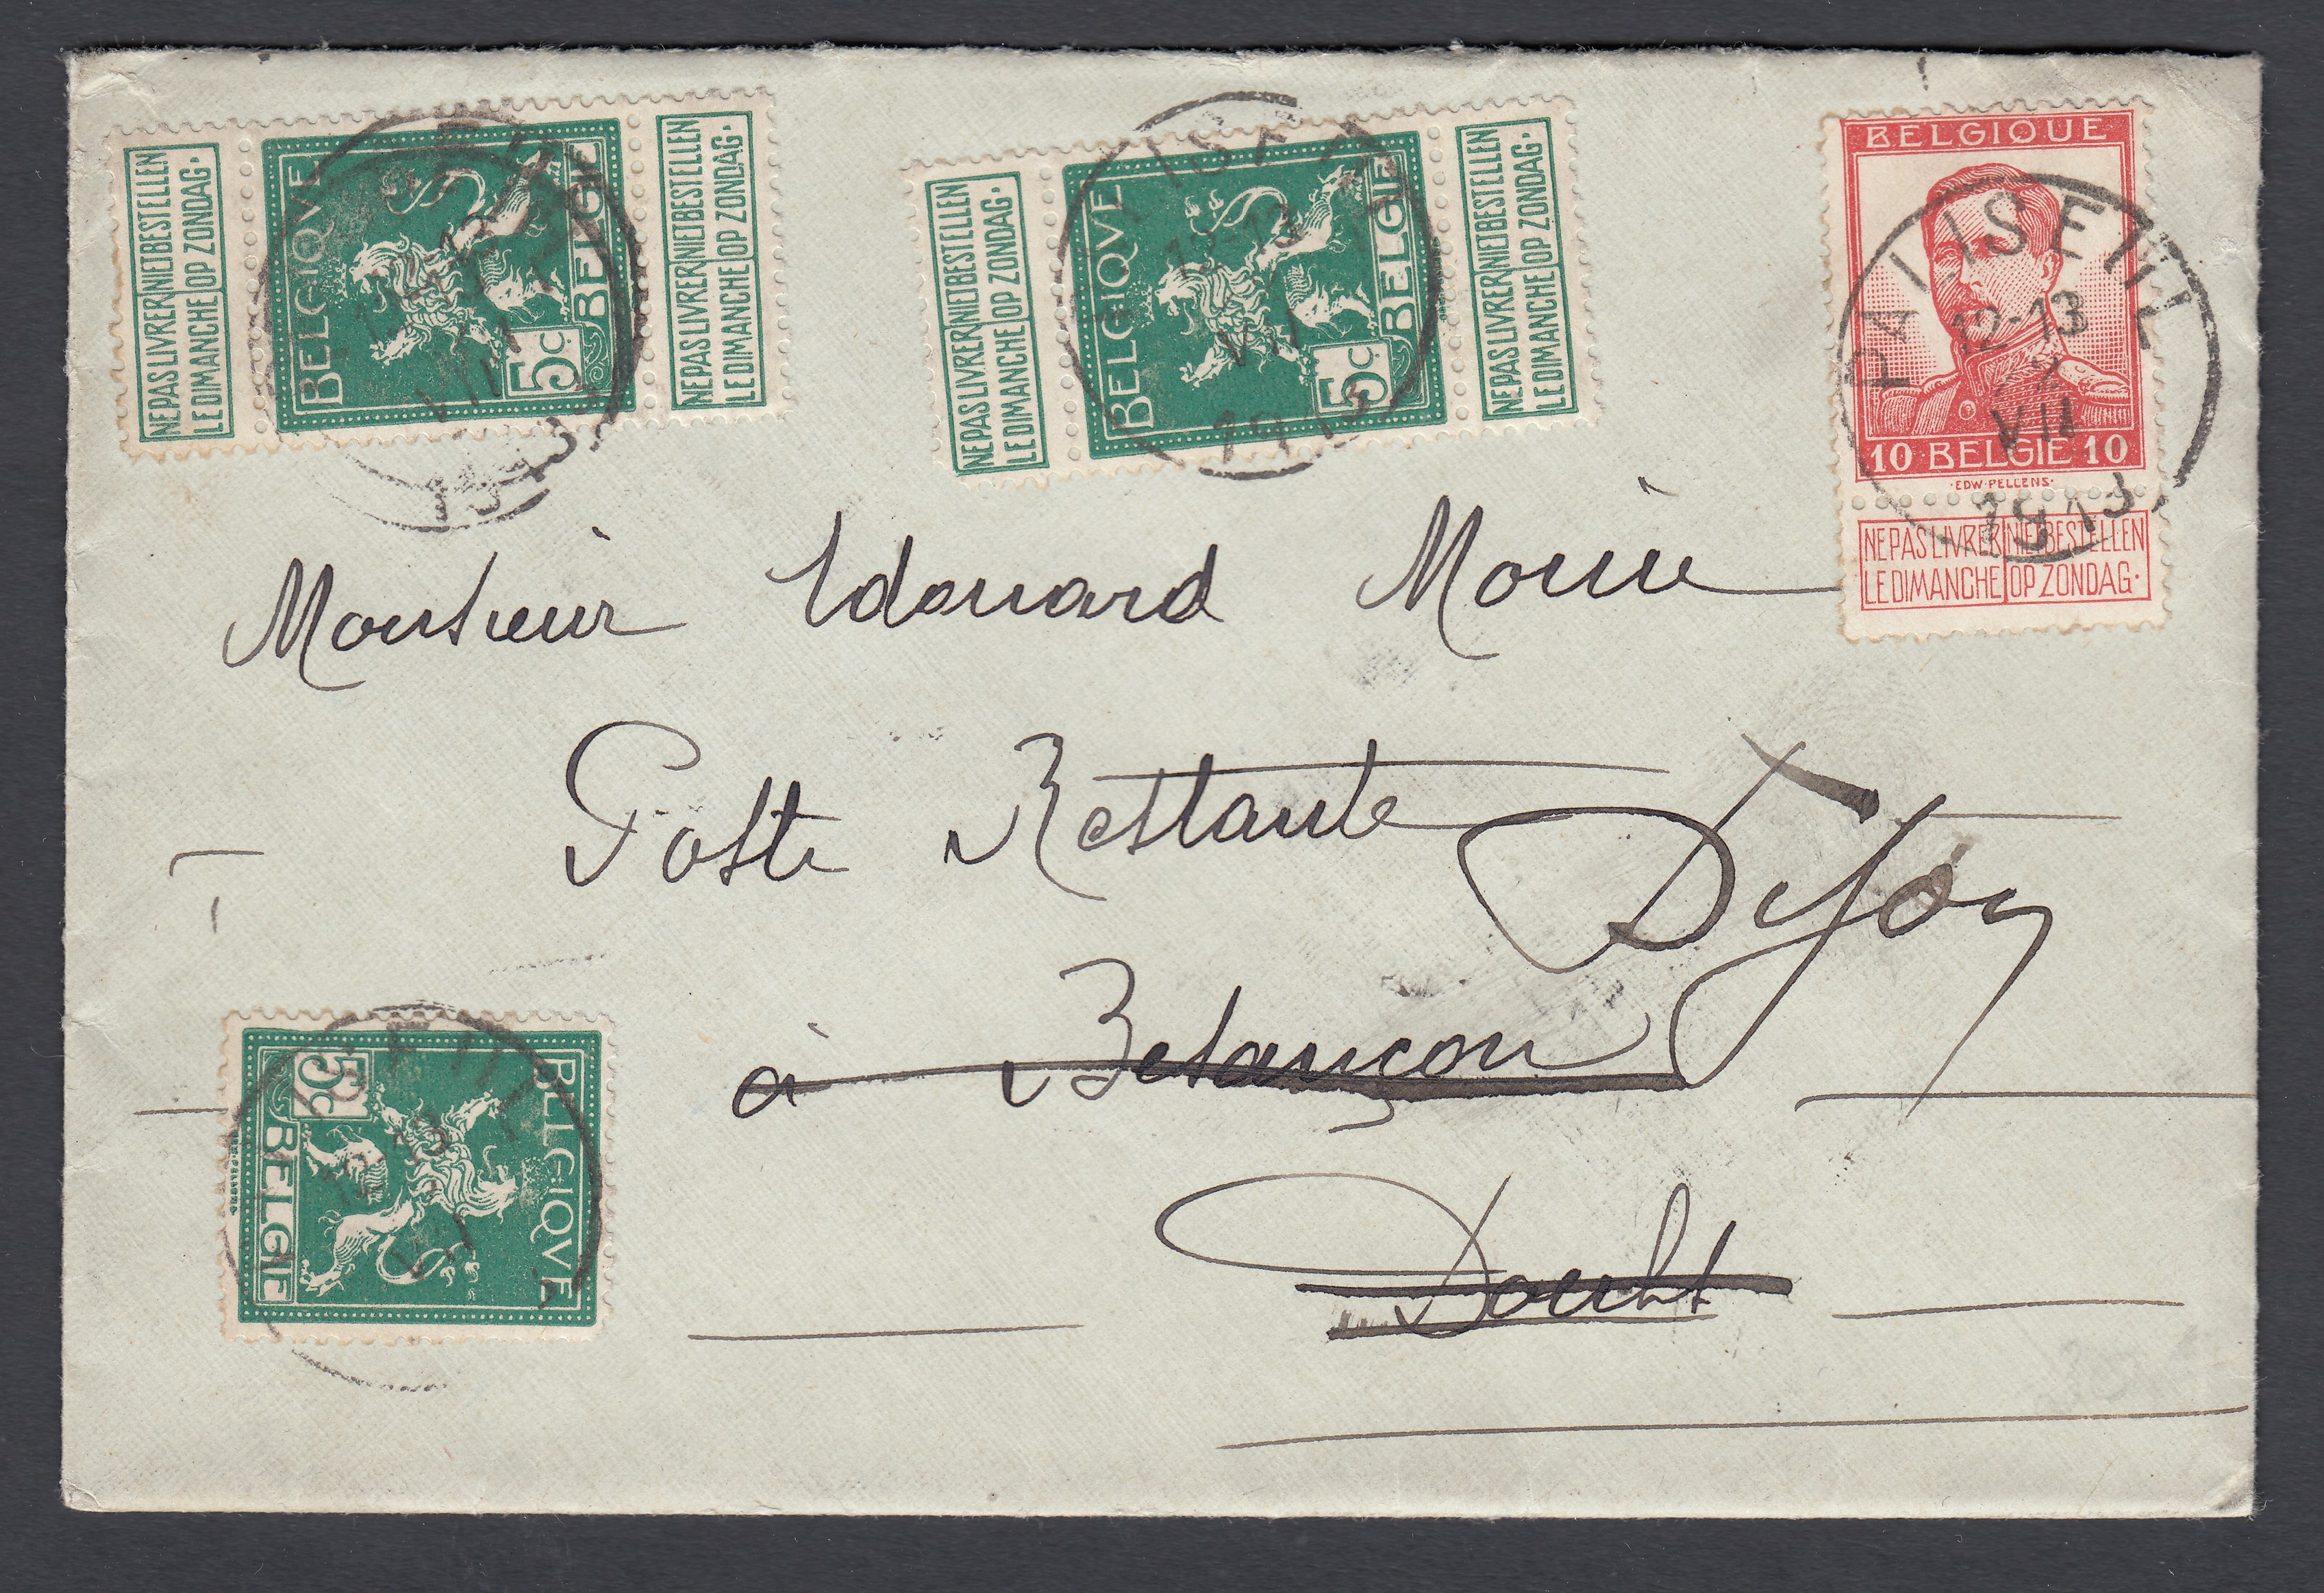 NE PAS LIVRER NIET BESTELLEN
LE DIMANCHE OP ZONDAG.
BELGIQVE
5c
BELGIE
NE PAS LIVRER NIET BESTELLEN
LE DIMANCHE OP ZONDAG.
NE PAS LIVRER NIET BESTELLEN
LE DIMANCHE OP ZONDAG.
BELGIQVE
5c
BELGIE
NE PAS LIVRER NIET BESTELLEN
LE DIMANCHE OP ZONDAG.
12-13
VII
1913
BELGIQUE
10 BELGIE 10
·EDW·PELLENS·
NE PAS LIVRER NIET BESTELLEN
LE DIMANCHE OP ZONDAG·
PALISEUL
12-13
2
VII
1913
Monsieur Edouard
Poste Restante
Dijon
à Besançon
Doubs
BELGIQVE
5c
BELGIE
12-13
VII